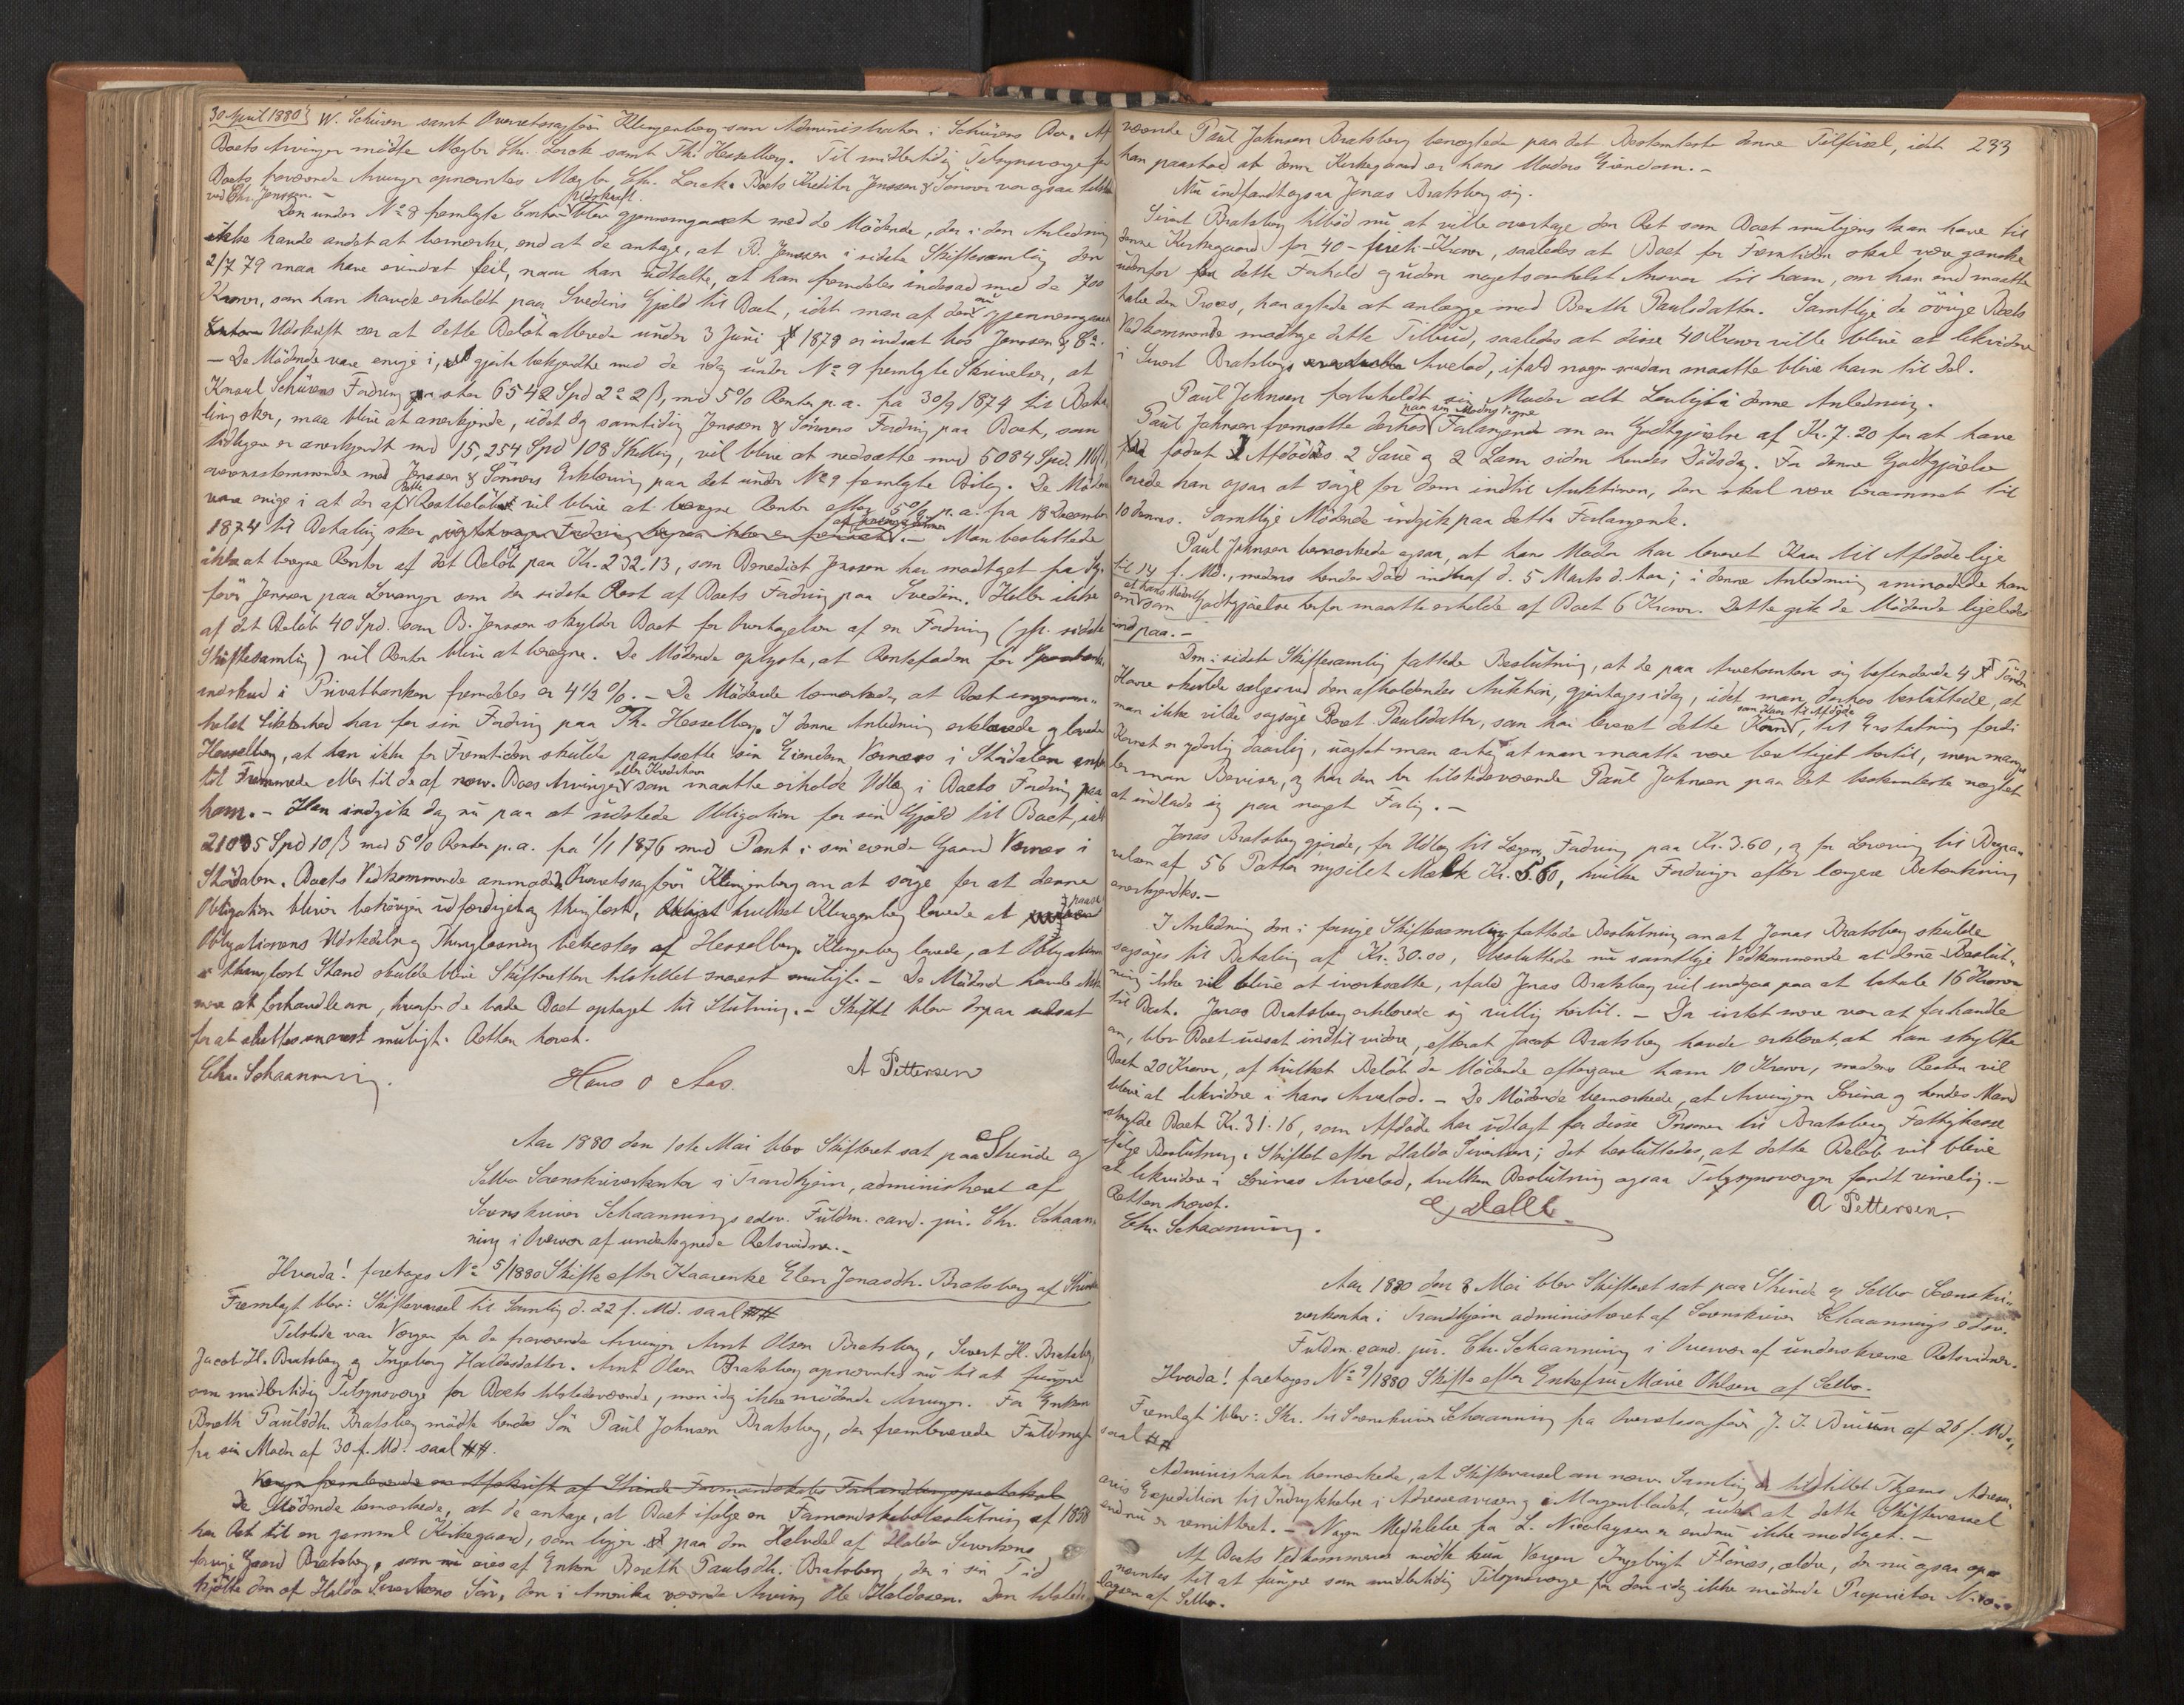 30 April 1880} W. Schüren samt Overretssagfører Klingenberg som Administrator i Schürens Bo. Af
Boets Arvinger mødte Mægler Chr. Lorck samt Th. Hesselberg. Til midlertidig Tilsynsverge for
Boets fraværende Arvinger opnævntes Mægler Chr. Lorck. Boets Kreditor Jenssen & Sønner var ogsaa tilstede
ved Chr. Jenssen. -
Den under No 8 fremlagte Conto Udskrift blev gjennemgaaet med de Mødende, der i den Anledning
ikke havde andet at bemærke, end at de antage, at B. Jenssen i sidste Skiftesamling den
2/7 79 maa have erindret feil, naar han udtalte, at han fremdeles indesad med de 700
Kroner, som han havde erholdt paa Svedins Gjæld til Boet, idet man af den nu gjennemgaaede
Udskrift ser at dette Beløb allerede under 3 Juni 1878 er indsat hos Jenssen & Co.
- De Mødende vare enige i, gjorte bekjendte med de idag under No 9 fremlagte Skrivelser, at
Konsul Schürens Fordring stor 6542 Spd 2 2 ß, med 5% Renter p.a. fra 30/9 1874 til Beta-
ling sker, maa blive at anerkjende, idet dog samtidig Jenssen & Sønners Fordring paa Boet, som
tidligere er anerkjendt med 15,254 Spd 108 Skilling, vil blive at nedsætte med 6084 Spd. 116 ß,
overensstemmende med Jenssen & Sønners Erklæring paa det under No 9 fremlagte Bilag. De Mødende
vare enige i at der af dette Restbeløb vil blive at beregne Renter efter 5% p.a. fra 18 December
1874 til Betaling sker. - Man besluttede
ikke at beregne Renter af det Beløb paa Kr. 232.13, som Benedict Jenssen har modtaget fra Sag-
fører Jenssen paa Levanger som den sidste Rest af Boets Fordring paa Svedin. Heller ikke
af det Beløb 40 Spd. som B. Jenssen skylder Boet for Overtagelsen af en Fordring (jfr. sidste
Skiftesamling) vil Renter blive at beregne. De Mødende oplyste, at Rentefoden for
indskud i Privatbanken fremdeles er 4 1/2 %. - De Mødende bemærkede, at Boet ingensom-
helst Sikkerhed har for sin Fordring paa Th. Hesselberg. I denne Anledning erklærede og lovede
Hesselberg, at han ikke for Fremtiden skulde pantsætte sin Eiendom Værnæs i Stördalen enten
til Fremmede eller til de af nærv. Boes Arvinger eller Kreditorer som maatte erholde Udlæg i Boets Fordring paa
ham. - Han indgik dog nu paa at udstede Obligation for sin Gjæld til Boet, ialt
21035 Spd 10 ß med 5% Renter p.a. fra 1/1 1876 med Pant i sin eiende Gaard Værnæs i
Stördalen. Boets Vedkommende anmodede Overretssagfører Klingenberg om at sørge for at denne
Obligation bliver behørigen udfærdiget og thinglæst, hvilket Klingenberg lovede at paase
Obligationens Udstedelse og Thinglæsning bekostes af Hesselberg. Klingenberg lovede, at Obligationen
i thinglæst Stand skulde blive Skifteretten tilstillet snarest muligt. - De Mødende havde ikke
mere at forhandle om, hvorfor de bade Boet optaget til Slutning. - Skiftet blev derpaa udsat
for at sluttes snarest muligt. Retten hævet.
Chr. Schaanning.   Hans O Aas.   A Pettersen

Aar 1880 den 1ste Mai blev Skifteret sat paa Strinde og
Selbo Sorenskriverkontor i Trondhjem, administreret af
Sorenskriver Schaannings edsv. Fuldm. cand. jur. Chr. Schaan-
ning i Overvær af undertegnede Retsvidner. -
Hvorda! foretoges No 5/1880 Skifte efter Kaarenke Elen Jonasdtr. Bratsberg af Strinde
Fremlagt blev: Skiftevarsel til Samling d. 22 f. Md. saal ##
Tilstede var Vergen for de fraværende Arvinger Arnt Olsen Bratsberg, Sivert H. Bratsberg,
Jacob H. Bratsberg og Ingeborg Haldosdatter. Arnt Olsen Bratsberg opnævntes nu til at fungere
som midlertidig Tilsynsverge for Boets tilstedeværende, men idag ikke mødende Arvinger. For Enken
Bereth Paulsdtr. Bratsberg mødte hendes Søn Paul Johnsen Bratsberg, der fremleverede Fuldmagt
fra sin Moder af 30 f. Md. saal ##.
Vergen fremleverede en Afskrift af Strinde Formandskabs Forhandlingsprotokol
De Mødende bemærkede, at de antage, at Boet ifølge en Formandskabsbeslutning af 1858
har Ret til en gammel Kirkegaard, som ligger paa den Halvdel af Haldo Sivertsens
forrige Gaard Bratsberg, som nu eies af Enken Bereth Paulsdtr. Bratsberg, der i sin Tid
kjøbte den af Haldo Sivertsens Søn, den i Amerika værende Arving Ole Haldosen. Den tilstede-
233
værende Paul Johnsen Bratsberg benægtede paa det Bestemteste denne Tilførsel, idet
han paastod at denne Kirkegaard er hans Moders Eiendom. -
Nu indfandt ogsaa Jonas Bratsberg sig.
Sivert Bratsberg tilbød nu at ville overtage den Ret som Boet muligens kan have til
denne Kirkegaard for 40 - fireti - Kroner, saaledes at Boet for Fremtiden skal være ganske
udenfor dette Forhold og uden nogetsomhelst Ansvar til ham, om han end maatte
tabe den Proces, han agtede at anlægge mod Bereth Paulsdatter. Samtlige de øvrige Boets
Vedkommende modtoge dette Tilbud, saaledes at disse 40 Kroner ville blive at likvidere
i Sivert Bratsbergs Arvelod, ifald nogen saadan maatte blive ham til Del.
Paul Johnsen forbeholdt sin Moder alt Lovligt i denne Anledning.
Paul Johnsen fremsatte derhos paa sin Moders Vegne Forlangende om en Godtgjørelse af Kr. 7.20 for at have
fødet Afdødes 2 Sauer og 2 Lam siden hendes Dødsdag. For denne Godtgjørelse
lovede han ogsaa at sørge for dem indtil Auktionen, der skal være berammet til
10 dennes. Samtlige Mødende indgik paa dette Forlangende.
Paul Johnsen bemærkede ogsaa, at hans Moder har leveret Kaar til Afdøde lige
til 14 f. Md., medens hendes Død indtraf d. 5 Marts d. Aar; i denne Anledning anmodede han
om at hans Moder som Godtgjørelse herfor maatte erholde af Boet 6 Kroner. Dette gik de Mødende ligeledes
ind paa. -
Den i sidste Skiftesamling fattede Beslutning, at de paa Arvetomten sig befindende 4 Tønder
Havre skulde sælges ved den afholdendes Auktion, gjentages idag, idet man derhos besluttede, at
man ikke vilde sagsøge Beret Paulsdatter, som har leveret dette Korn som Kaar til Afdøde, til Erstatning fordi
Kornet er yderlig daarlig, uagtet man antog at man maatte være berettiget hertil, men mang-
ler man Beviser, og har den her tilstedeværende Paul Johnsen paa det bestemteste nægtet
at indlade sig paa noget Forlig. -
Jonas Bratsberg gjorde, for Udlæg til Lægen, Fordring paa Kr. 3.60, og for Levering til Begra-
velsen af 56 Potter nysilet Mælk Kr. 5.60, hvilke Fordringer efter længere Betænkning
anerkjendtes. -
I Anledning den i forrige Skiftesamling fattede Beslutning om at Jonas Bratsberg skulde
sagsøges til Betaling af Kr. 30.00, besluttede nu samtlige Vedkommende at denne Beslut-
ning ikke vil blive at iværksætte, ifald Jonas Bratsberg vil indgaa paa at betale 16 Kroner
til Boet. Jonas Bratsberg erklærede sig villig hertil. - Da intet mere var at forhandle
om, blev Boet udsat indtil videre, efterat Jacob Bratsberg havde erklæret at han skyldte
Boet 20 Kroner, af hvilket Beløb de Mødende eftergave ham 10 Kroner, medens Resten vil
blive at likvidere i hans Arvelod. - De Mødende bemærkede, at Arvingen Serina og hendes Mand
skylde Boet Kr. 31.16, som Afdøde har udlagt for disse Personer til Bratsberg Fattigkasse
ifølge Beslutning i Skiftet efter Haldo Sivertsen; det besluttedes, at dette Beløb vil blive
at likvidere i Serines Arvelod, hvilken Beslutning ogsaa Tilsynsvergen fandt rimelig. -
Retten hævet.
Chr. Schaanning.   A Pettersen.

Aar 1880 den 8 Mai blev Skifteret sat paa Strinde og Selbo Sorenskri-
verkontor i Trondhjem administreret af Sorenskriver Schaannings edsv.
Fuldm. cand. jur. Chr. Schaanning i Overvær af underskrevne Retsvidner.
Hvorda! foretoges No 9/1880 Skifte efter Enkefru Marie Ohlsen af Selbo.
Fremlagt blev: Skr. til Sorenskriver Schaanning fra Overretssagfører J. J. Bruun af 26 f. Md.,
saal ##
Administrator bemærkede, at Skiftevarsel om nærv. Samling er tilstillet Thjems Adresse-
avis Expedition til Indrykkelse i Adresseavisen og i Morgenbladet, uden at dette Skiftevarsel
endnu er remitteret. - Nogen Meddelelse fra L. Nicolaysen er endnu ikke modtaget. -
Af Boets Vedkommende mødte kun Vergen Ingebrigt Flønes, ældre, der nu ogsaa op-
nævntes til at fungere som midlertidig Tilsynsverge for den idag ikke mødende Proprietær Nicolay-
sen af Selbo.